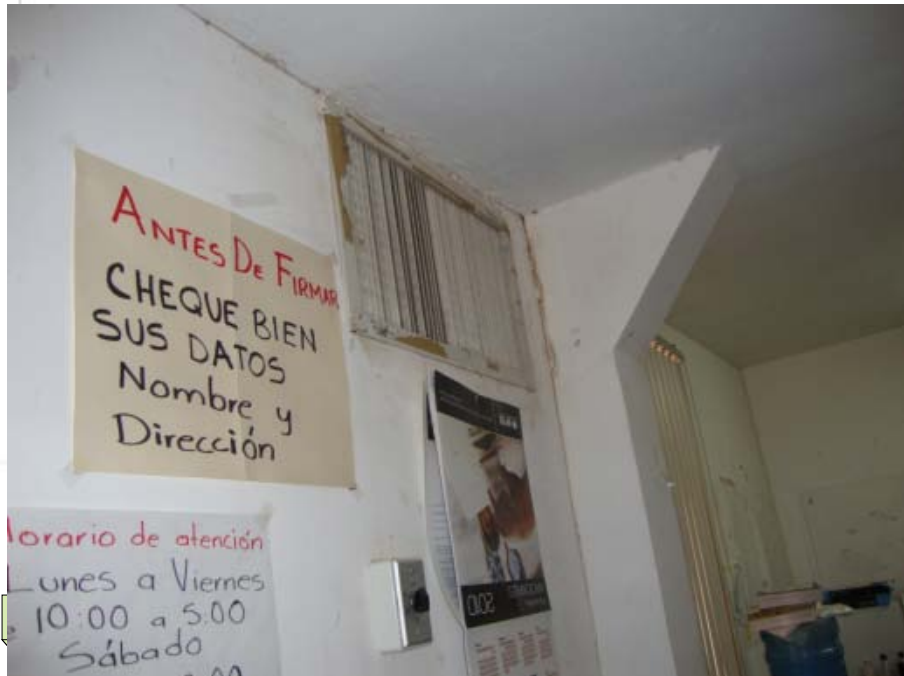 ANTES DE FIRMAR
CHEQUE BIEN
SUS DATOS
Nombre y
Dirección
Horario de atención
Lunes a Viernes
10:00 a 5:00
Sábado
2010